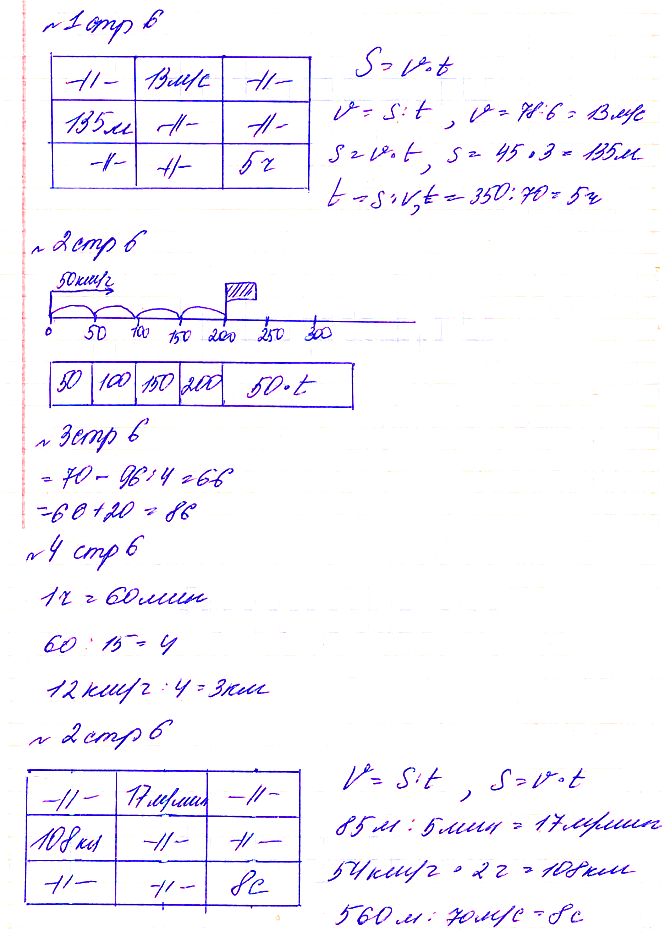 №1 стр 6
-//- 13м/с -//-
135м -//- -//-
-//- -//- 5ч
S = v·t
v = s:t , v = 78:6 = 13м/с
s = v·t, s = 45·3 = 135м
t = s:v, t = 350:70 = 5ч
№2 стр 6
50км/ч
0 50 100 150 200 250 300
50 100 150 200 50·t
№3 стр 6
= 70 - 96:4 = 66
= 66 + 20 = 86
№4 стр 6
1ч = 60мин
60 : 15 = 4
12км/ч : 4 = 3км
№2 стр 6
-//- 17м/мин -//-
108км -//- -//-
-//- -//- 8с
v = S:t , S = v·t
85м : 5мин = 17м/мин
54км/ч · 2ч = 108км
560м : 70м/с = 8с